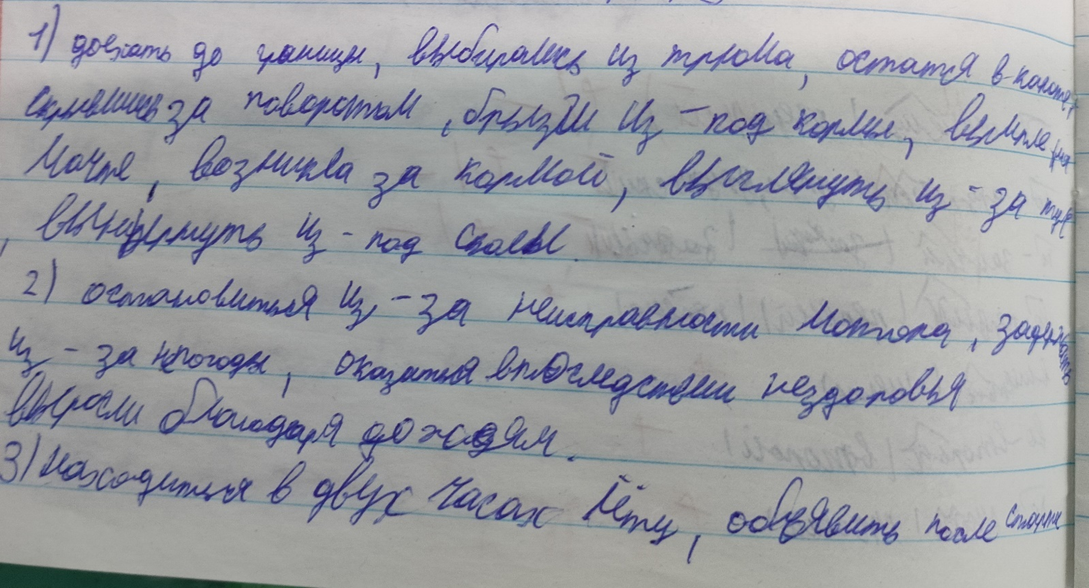 1) доехать до границы, выбирались из трюма, остатся в кают
скрывшись за поворотом, брызги из-под кормы, вымпел на
мачте, возникла за кормой, выглянуть из-за ту
, вынырнуть из-под скалы.
2) остановиться из-за неисправности мотора, задержать
из-за непогоды, оказаться впоследствии нездоровья
выросли благодаря дождям.
3) находиться в двух часах лёту, объявить после